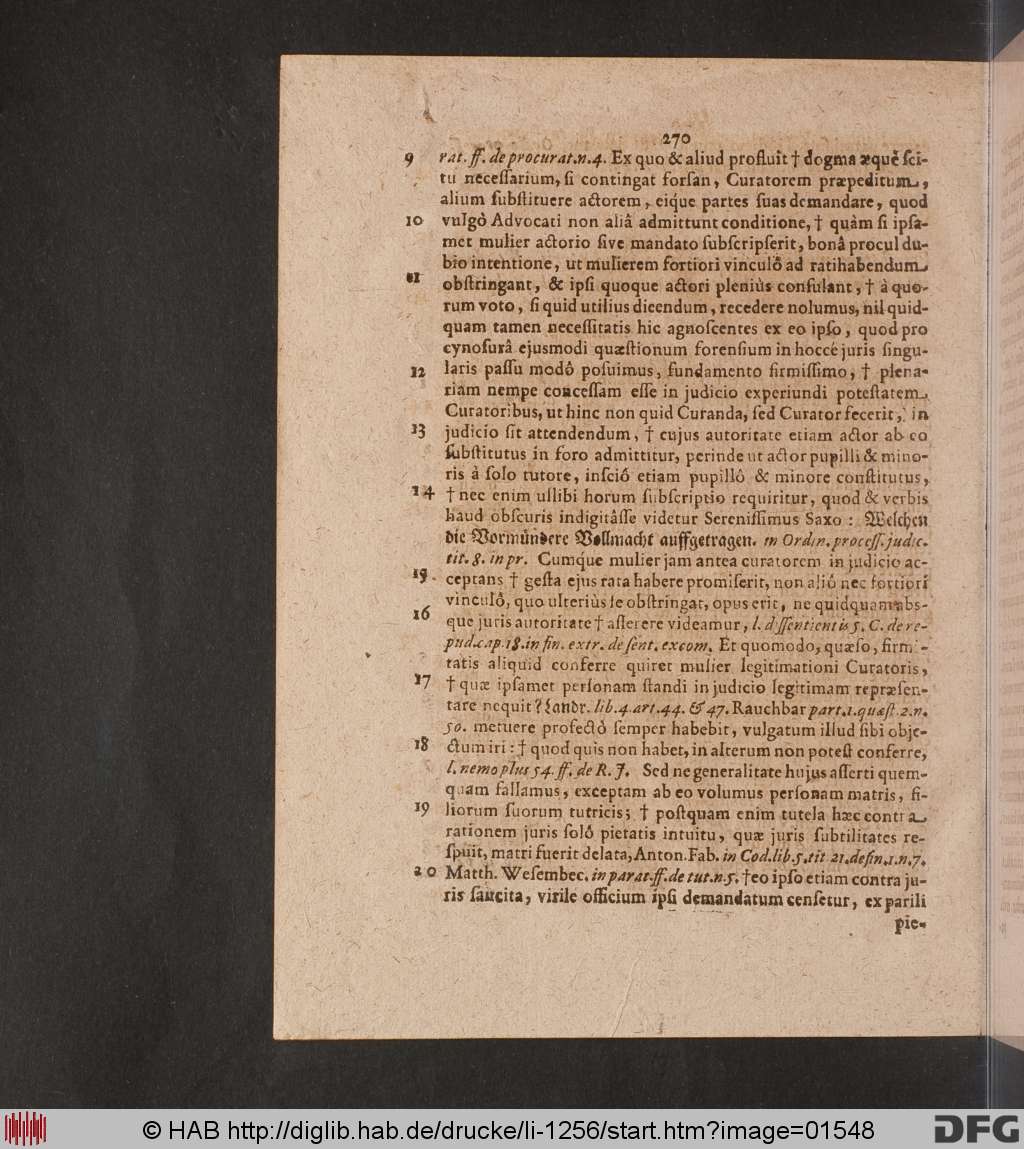 270
9 rat. ff. de procurat. n. 4. Ex quo & aliud profluit † dogma æquè ſci-
tu neceſſarium, ſi contingat forſan, Curatorem præpeditum,
alium ſubſtituere actorem, eique partes ſuas demandare, quod
10 vulgò Advocati non aliâ admittunt conditione, † quàm ſi ipſa-
met mulier actorio ſive mandato ſubſcripſerit, bonâ procul du-
bio intentione, ut mulierem fortiori vinculô ad ratihabendum
11 obſtringant, & ipſi quoque actori pleniùs conſulant, † à quo-
rum voto, ſi quid utilius dicendum, recedere nolumus, nil quid-
quam tamen neceſſitatis hic agnoſcentes ex eo ipſo, quod pro
cynoſurâ ejusmodi quæſtionum forenſium in hoccé juris ſingu-
12 laris paſſu modô poſuimus, fundamento firmiſſimo, † plena-
riam nempe conceſſam eſſe in judicio experiundi poteſtatem
Curatoribus, ut hinc non quid Curanda, ſed Curator fecerit, in
13 judicio ſit attendendum, † cujus autoritate etiam actor ab eo
ſubſtitutus in foro admittitur, perinde ut actor pupilli & mino-
ris à ſolo tutore, inſciô etiam pupillô & minore conſtitutus,
14 † nec enim ullibi horum ſubſcriptio requiritur, quod & verbis
haud obſcuris indigitâſſe videtur Sereniſſimus Saxo: Welchen
die Vormündere Vollmacht auffgetragen. in Ordin. proceſſ. judic.
tit. 8. in pr. Cumque mulier jam antea curatorem in judicio ac-
15 ceptans † geſta ejus rata habere promiſerit, non aliô nec fortiori
vinculô, quo ulteriùs ſe obſtringat, opus erit, ne quidquam abs-
16 que juris autoritate † aſſerere videamur, l. diſſentientis 5. C. de re-
pud. cap. 18. in fin. extr. de ſent. excom. Et quomodo, quæſo, firmi-
tatis aliquid conferre quiret mulier legitimationi Curatoris,
17 † quæ ipſamet perſonam ſtandi in judicio legitimam repræſen-
tare nequit? Landr. lib. 4. art. 44. & 47. Rauchbar part. 1. quæſt. 2. n.
50. metuere profectò ſemper habebit, vulgatum illud ſibi obje-
18 ctum iri: † quod quis non habet, in alterum non poteſt conferre,
l. nemo plus 54. ff. de R. J. Sed ne generalitate hujus aſſerti quem-
quam fallamus, exceptam ab eo volumus perſonam matris, fi-
19 liorum ſuorum tutricis; † poſtquam enim tutela hæc contra
rationem juris ſolô pietatis intuitu, quæ juris ſubtilitates re-
ſpuit, matri fuerit delata, Anton. Fab. in Cod. lib. 5. tit 21. defin. 1. n. 7.
20 Matth. Weſembec. in parat. ff. de tut. n. 5. † eo ipſo etiam contra ju-
ris ſancita, virile officium ipſi demandatum cenſetur, ex parili
pie-
© HAB http://diglib.hab.de/drucke/li-1256/start.htm?image=01548
DFG